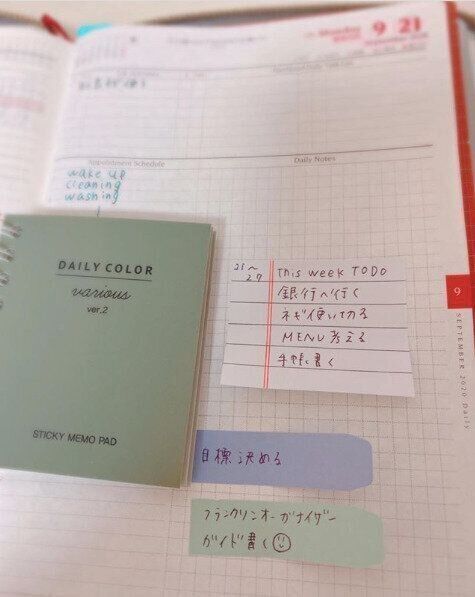 Monday
9 21
Appointment Schedule
Daily Notes
wake up
cleaning
washing
DAILY COLOR
various
ver.2
STICKY MEMO PAD
21〜
27
This week TODO
銀行へ行く
ネギ使い切る
MENU考える
手帳書く
9
SEPTEMBER 2020 Daily
目標決める
フランクリンオーガナイザー
ガイド書く